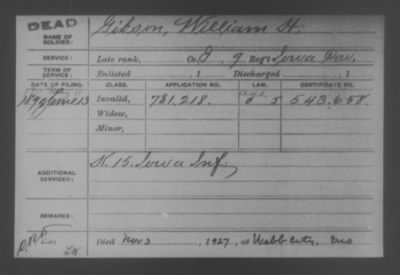 DEAD
Gibson, William H.
NAME OF SOLDIER:
SERVICE: Late rank, Co. D, 9 Reg't Iowa Cav.
TERM OF SERVICE: Enlisted , 1 Discharged , 1
DATE OF FILING. CLASS. APPLICATION NO. LAW. CERTIFICATE NO.
1890 June 13 Invalid, 781,218. 543,658.
Widow,
Minor,
ADDITIONAL SERVICES: K. 15. Iowa Inf.
REMARKS:
Died Nov 3 , 1927, at Webb City, Mo